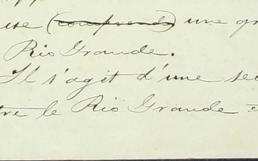 (comprend) une
Rio Grande.
Il s'agit d'une
le Rio Grande